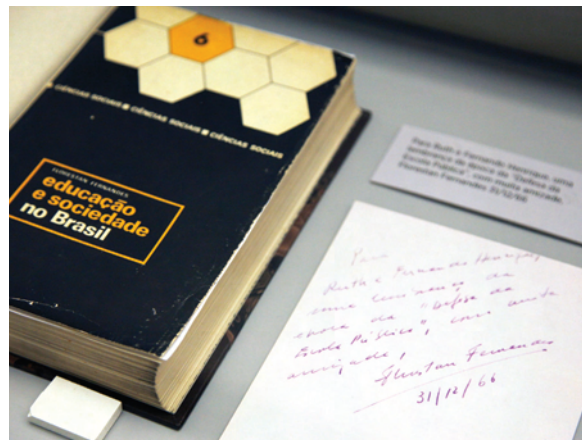 6
CIÊNCIAS SOCIAIS ■ CIÊNCIAS SOCIAIS ■ CIÊNCIAS SOCIAIS
FLORESTAN FERNANDES
educação
e sociedade
no Brasil
Para Ruth e Fernando Henrique, uma
lembrança da época da "Defesa da
Escola Pública", com muita amizade,
Florestan Fernandes 31/12/66
Para
Ruth e Fernando Henrique,
uma lembrança da
época da "Defesa da
Escola Pública", com muita
amizade,
Florestan Fernandes
31/12/66